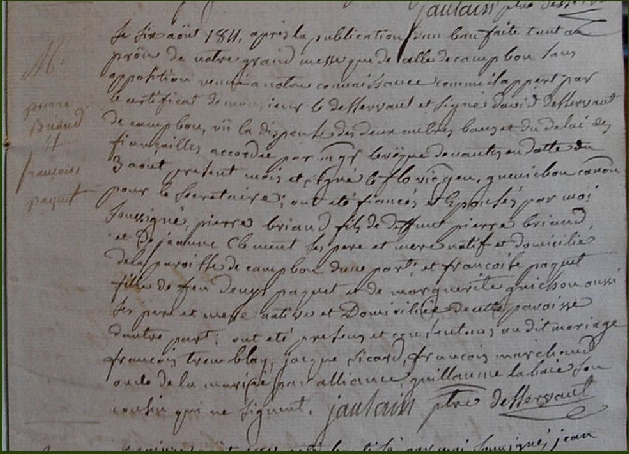 jautain ptre desservant
Le six août 1811, après la publication d'un ban faite tant au
prône de notre grand messe que de celle de campbon sans
opposition venue a notre connaissance comme il appert par
le certificat de monsieur le desservant et signé david desservant
de campbon, vû la dispense des deux autres bans et du delai des
fiançailles accordée par mgr levêque de nantes en datte du
3 aout present mois et signé le flo vic. gen. guerchon
pour le Secretaire; ont été fiancés et Epousés par moi
Soussigné, pierre briand fils de deffunt pierre briand,
et de jeanne Clément ses pere et mere natif et domicilié
de la paroisse de campbon dune part, et francoise paquet
fille de feu denys paquet et de marguerite guichon aussi
ses pere et mere native et Domiciliée de cette paroisse
dautre part; ont été presens et consentans au dit mariage
françois tremblay, jacque Sicard, françois marchand
oncle de la mariée par alliance, guillaume la baie son
cousin qui ne signent. jautain ptre desservant
M.
pierre
Briand
et
françoise
paquet
moi Soussigné, jean